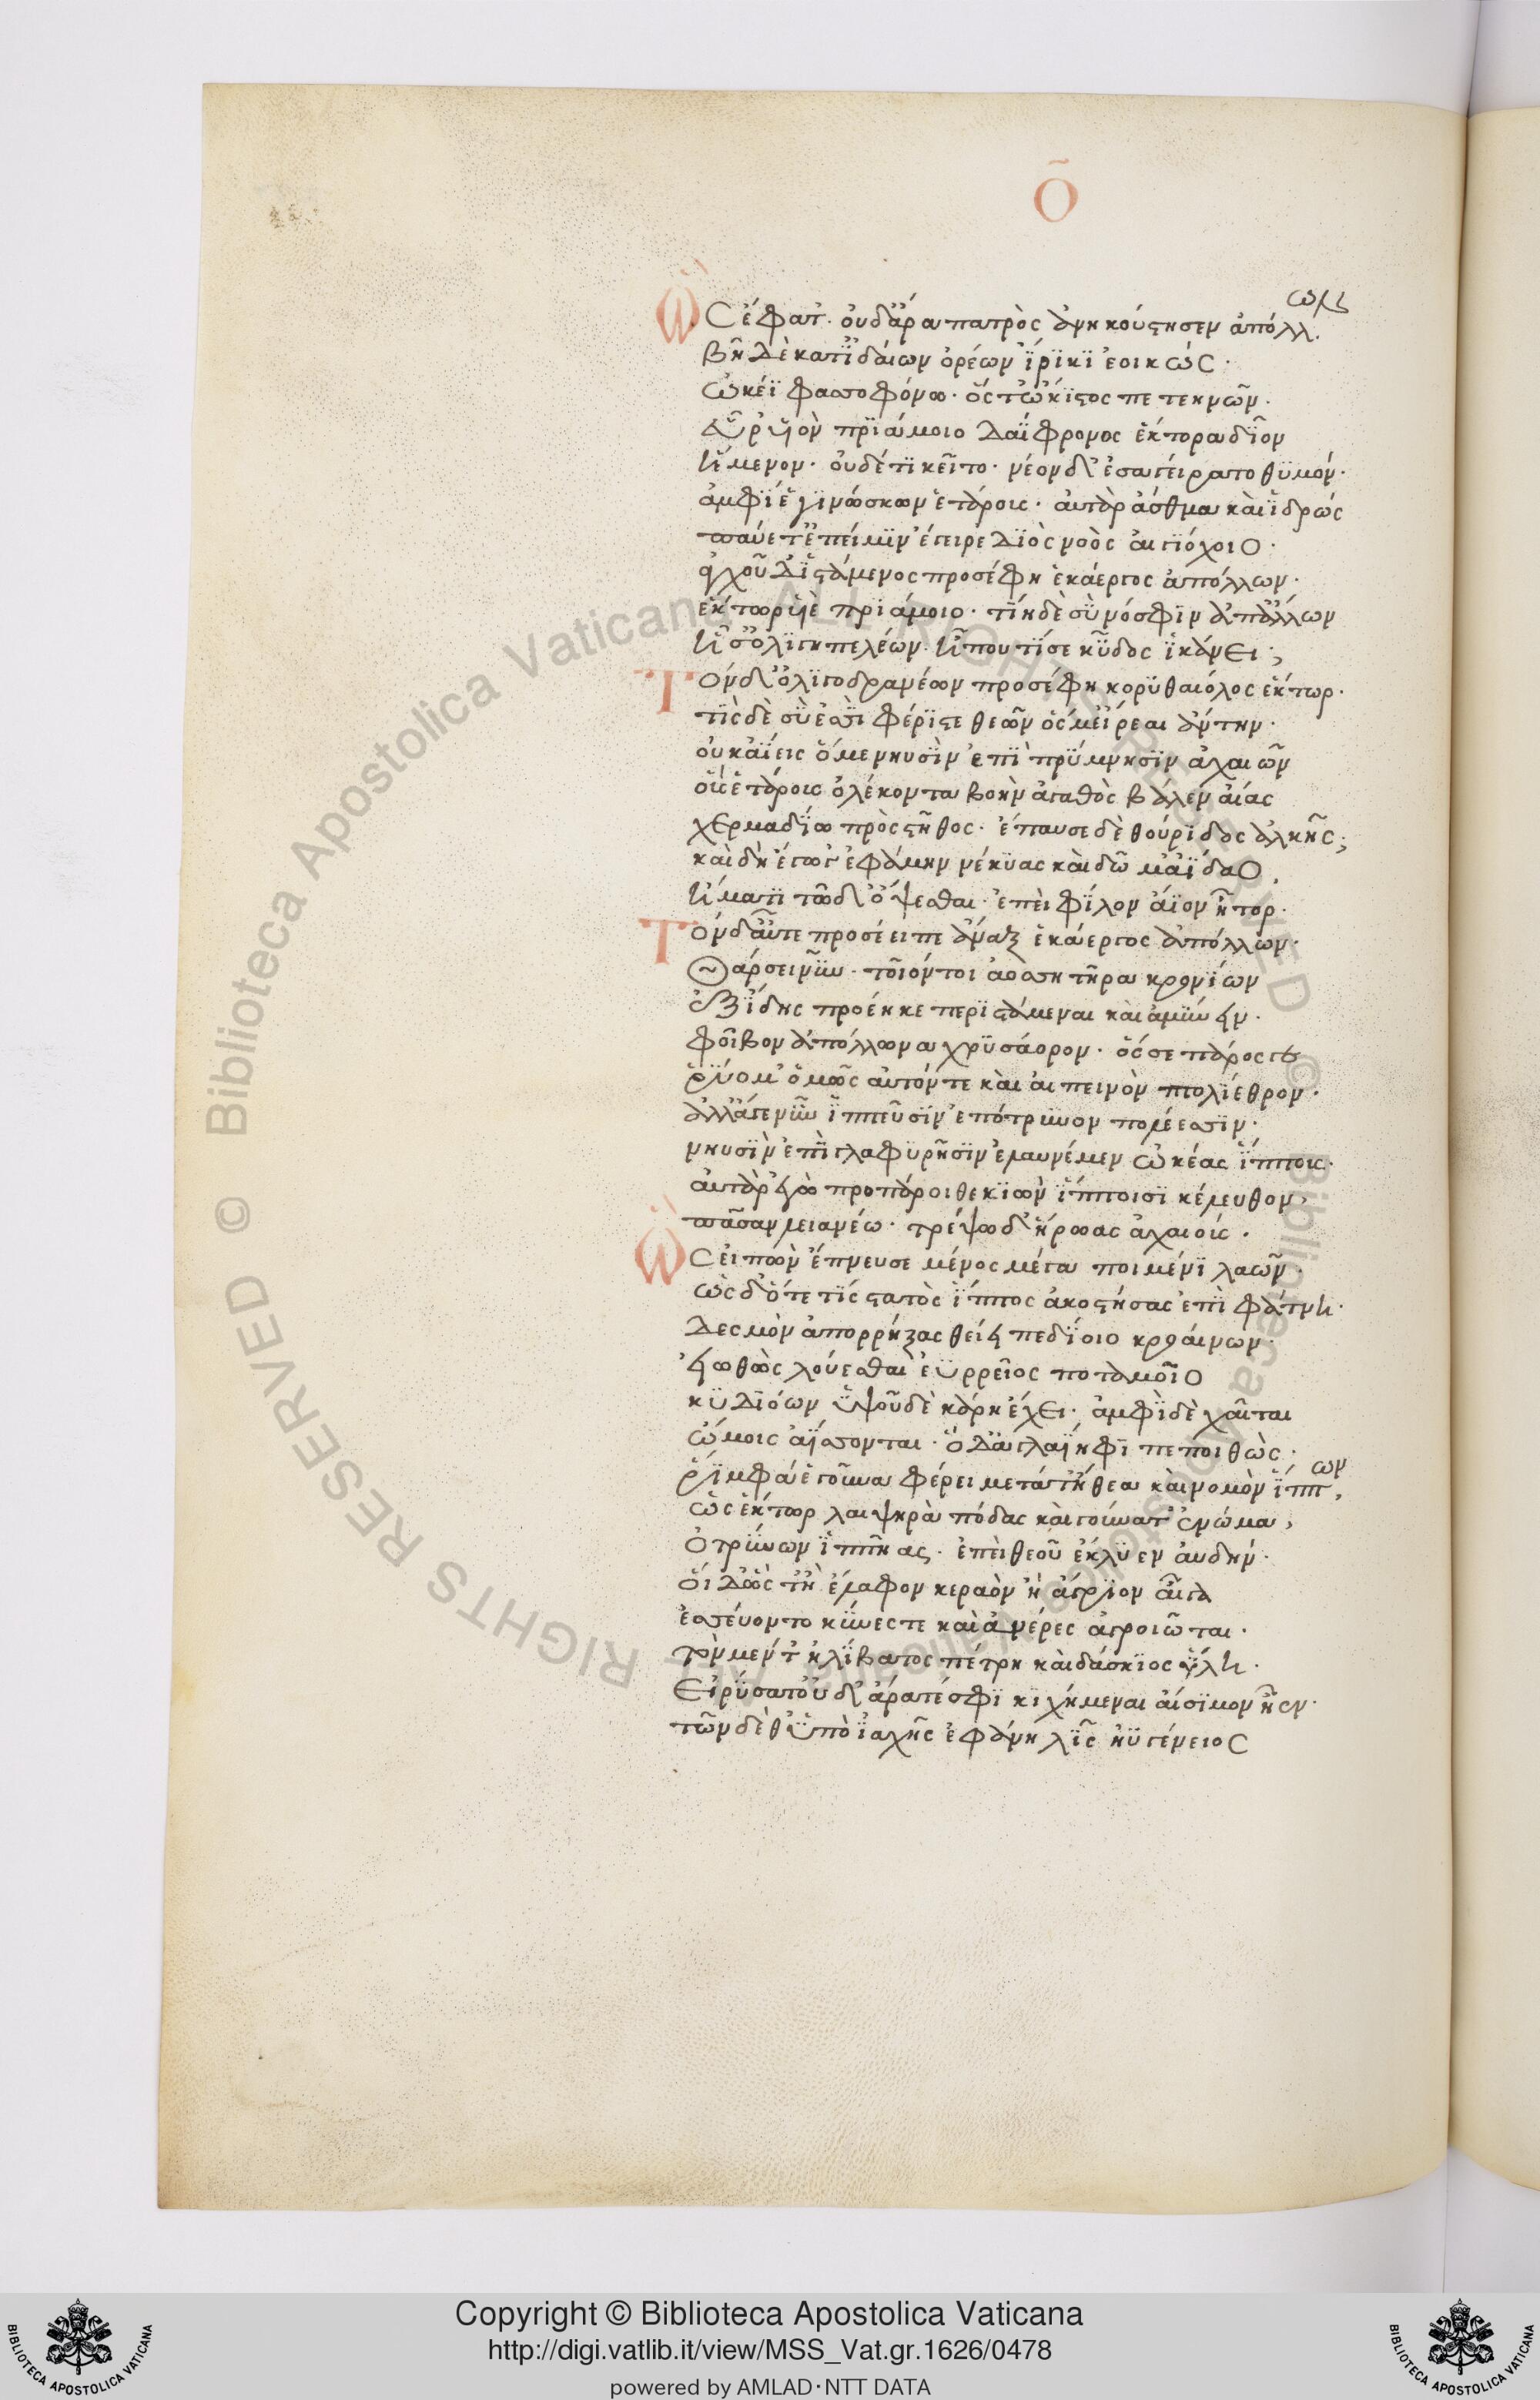 Ο
Ὣς ἔφατ'. οὐδ' ἄρα πατρὸς ἀνηκούστησεν ἀπόλλων.
βῆ δὲ κατ' ἰδαίων ὀρέων ἴρηκι ἐοικώς.
ὠκέϊ φασσοφόνω. ὅς τ' ὤκιστος πετεηνῶν.
εὗρ' υἱὸν πριάμοιο δαΐφρονος ἕκτορα δῖον
ἥμενον. οὐδέ τι κεῖτο. νέον δ' ἐσαγείρατο θυμόν.
ἀμφὶ ἓ γινώσκων ἑτάροις. αὐτὰρ ἆσθμα καὶ ἱδρώς
παύετ' ἐπεί μιν ἔγειρε διὸς νόος αἰγιόχοιο.
ἀγχοῦ δ' ἱστάμενος προσέφη ἑκάεργος ἀπόλλων.
ἕκτορ υἱὲ πριάμοιο. τίη δὲ σὺ νόσφιν ἀπ' ἄλλων
ἧσ' ὀλιγηπελέων. ἦ πού τί σε κῦδος ἱκάνει;
Τὸν δ' ὀλιγοδρανέων προσέφη κορυθαιόλος ἕκτωρ.
τίς δὲ σύ ἐσσι φέριστε θεῶν ὅς μ' εἴρεαι ἄντην.
οὐκ ἀΐεις ὅ με νηυσὶν ἐπὶ πρύμνησιν ἀχαιῶν
οὓς ἑτάροις ὀλέκοντα βοὴν ἀγαθὸς βάλεν αἴας
χερμαδίω πρὸς στῆθος. ἔπαυσε δὲ θούριδος ἀλκῆς;
καὶ δὴ ἔγωγ' ἐφάμην νέκυας καὶ δῶμ' ἀΐδαο,
ἤματι τῶδ' ὄψεσθαι. ἐπεὶ φίλον ἄϊον ἦτορ.
Τὸν δ' αὖτε προσέειπε ἄναξ ἑκάεργος ἀπόλλων.
Θάρσει νῦν. τοῖόν τοι ἀοσσητῆρα κρονίων
ἐξ ἴδης προέηκε περιστάμεναι καὶ ἀμύνειν.
φοῖβον ἀπόλλωνα χρυσάορον. ὅς σε πάρος περ
ῥύομ' ὁμῶς αὐτόν τε καὶ αἰπεινὸν πτολίεθρον.
ἀλλ' ἄγε νῦν ἱππεῦσιν ἐπότρυνον πολέεσσιν.
νηυσὶν ἐπὶ γλαφυρῆσιν ἐλαυνέμεν ὠκέας ἵππους.
αὐτὰρ ἐγὼ προπάροιθε κιὼν ἵπποισι κέλευθον,
πᾶσαν λειανέω. τρέψω δ' ἥρωας ἀχαιούς.
Ὣς εἰπὼν ἔπνευσε μένος μέγα ποιμένι λαῶν.
ὡς δ' ὅτε τίς στατὸς ἵππος ἀκοστήσας ἐπὶ φάτνη.
δεσμὸν ἀπορρήξας θείει πεδίοιο κροαίνων.
εἰωθὼς λούεσθαι ἐϋρρεῖος ποταμοῖο
κυδιόων ὑψοῦ δὲ κάρη ἔχει. ἀμφὶ δὲ χαῖται
ὤμοις ἀΐσσονται. ὁ δ' ἀγλαΐηφι πεποιθὼς.
ῥίμφα ἑ γοῦνα φέρει μετά τ' ἤθεα καὶ νομὸν ἵππων,
ὣς ἕκτωρ λαιψηρὰ πόδας καὶ γούνατ' ἐνώμα,
ὀτρύνων ἱππῆας. ἐπεὶ θεοῦ ἔκλυεν αὐδήν.
οἱ δ' ὥς τ' ἢ ἔλαφον κεραὸν ἢ ἄγριον αἶγα
ἐσσεύοντο κύνες τε καὶ ἀνέρες ἀγροιῶται.
τὸν μέν τ' ἠλίβατος πέτρη καὶ δάσκιος ὕλη.
Εἰρύσατ' οὐδ' ἄρα τέ σφι κιχήμεναι αἴσιμον ἦεν.
τῶν δέ θ' ὑπὸ ἰαχῆς ἐφάνη λὶς ἠϋγένειος
Copyright © Biblioteca Apostolica Vaticana
http://digi.vatlib.it/view/MSS_Vat.gr.1626/0478
powered by AMLAD·NTT DATA
BIBLIOTECA APOSTOLICA VATICANA
BIBLIOTECA APOSTOLICA VATICANA
© Biblioteca Apostolica Vaticana ALL RIGHTS RESERVED © Biblioteca Apostolica Vaticana ALL RIGHTS RESERVED